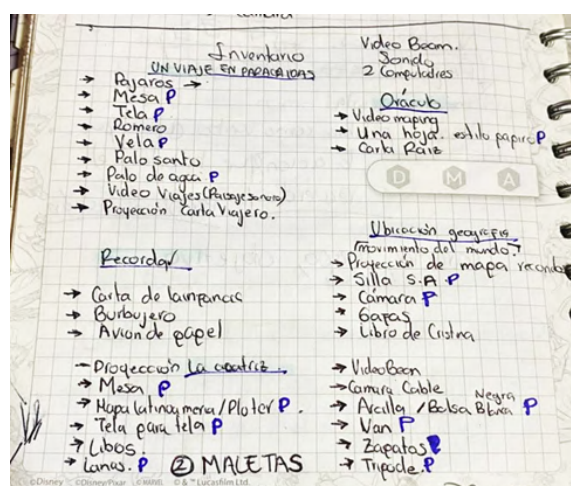 Inventario
UN VIAJE EN PARACAIDAS
→ Pajaros →
→ Mesa P
→ Tela P
→ Romero
→ Vela P
→ Palo santo
→ Palo de agua P
→ Video Viajes (Paisaje sonoro)
→ Proyección Carta Viajero.
Recordar
→ Carta de
→ Burbujero
→ Avion de papel
→ Proyección La cicatriz.
→ Mesa P
→ Mapa latinoameria/Ploter P.
→ Tela para tela P
→ Libos.
→ Lanas. P
② MALETAS
Video Beam.
Sonido
2 Computadores
Oráculo
→ Video maping
→ Una hoja. estilo papiro P
→ Carta Raiz
D M A
Ubicación geografia
(movimiento del mundo?
→ Proyección de mapa
→ Silla S.A P
→ Cámara P
→ Gafas
→ Libro de Cristina
→ Video Bean
→ Camara Cable
→ Arcilla / Bolsa Negra Blanca P
→ Van P
→ Zapatos P
→ Tripode. P
©Disney ©Disney/Pixar © MARVEL © & ™ Lucasfilm Ltd.